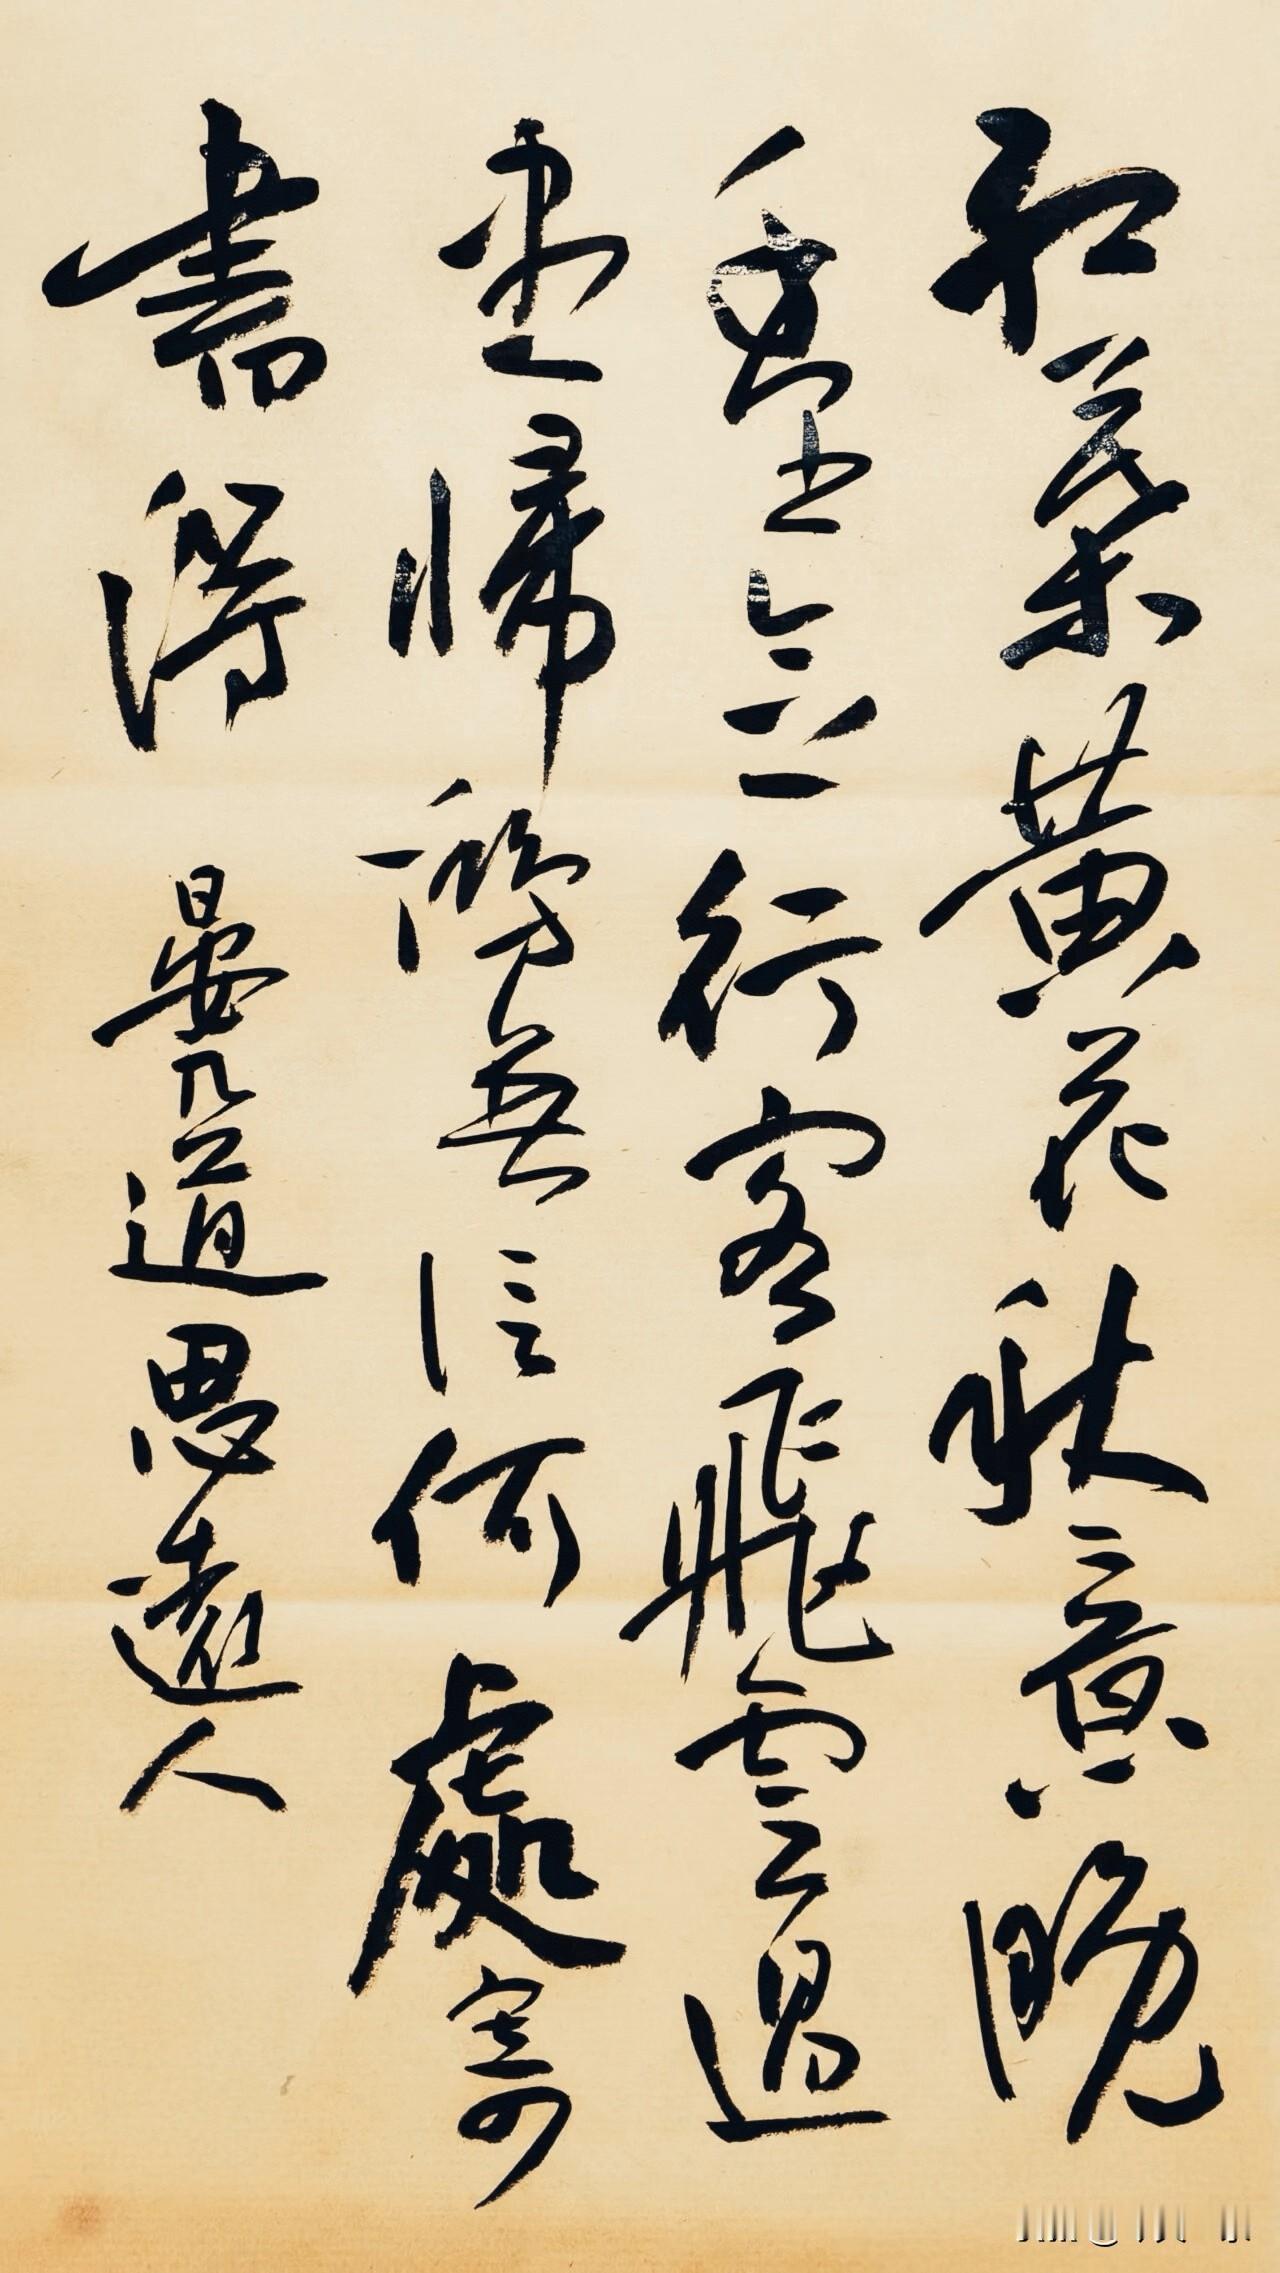 紅葉黄花秋意晚
千里念行客飛雲過
盡歸鴻無信何處寄
書得 晏几道思遠人